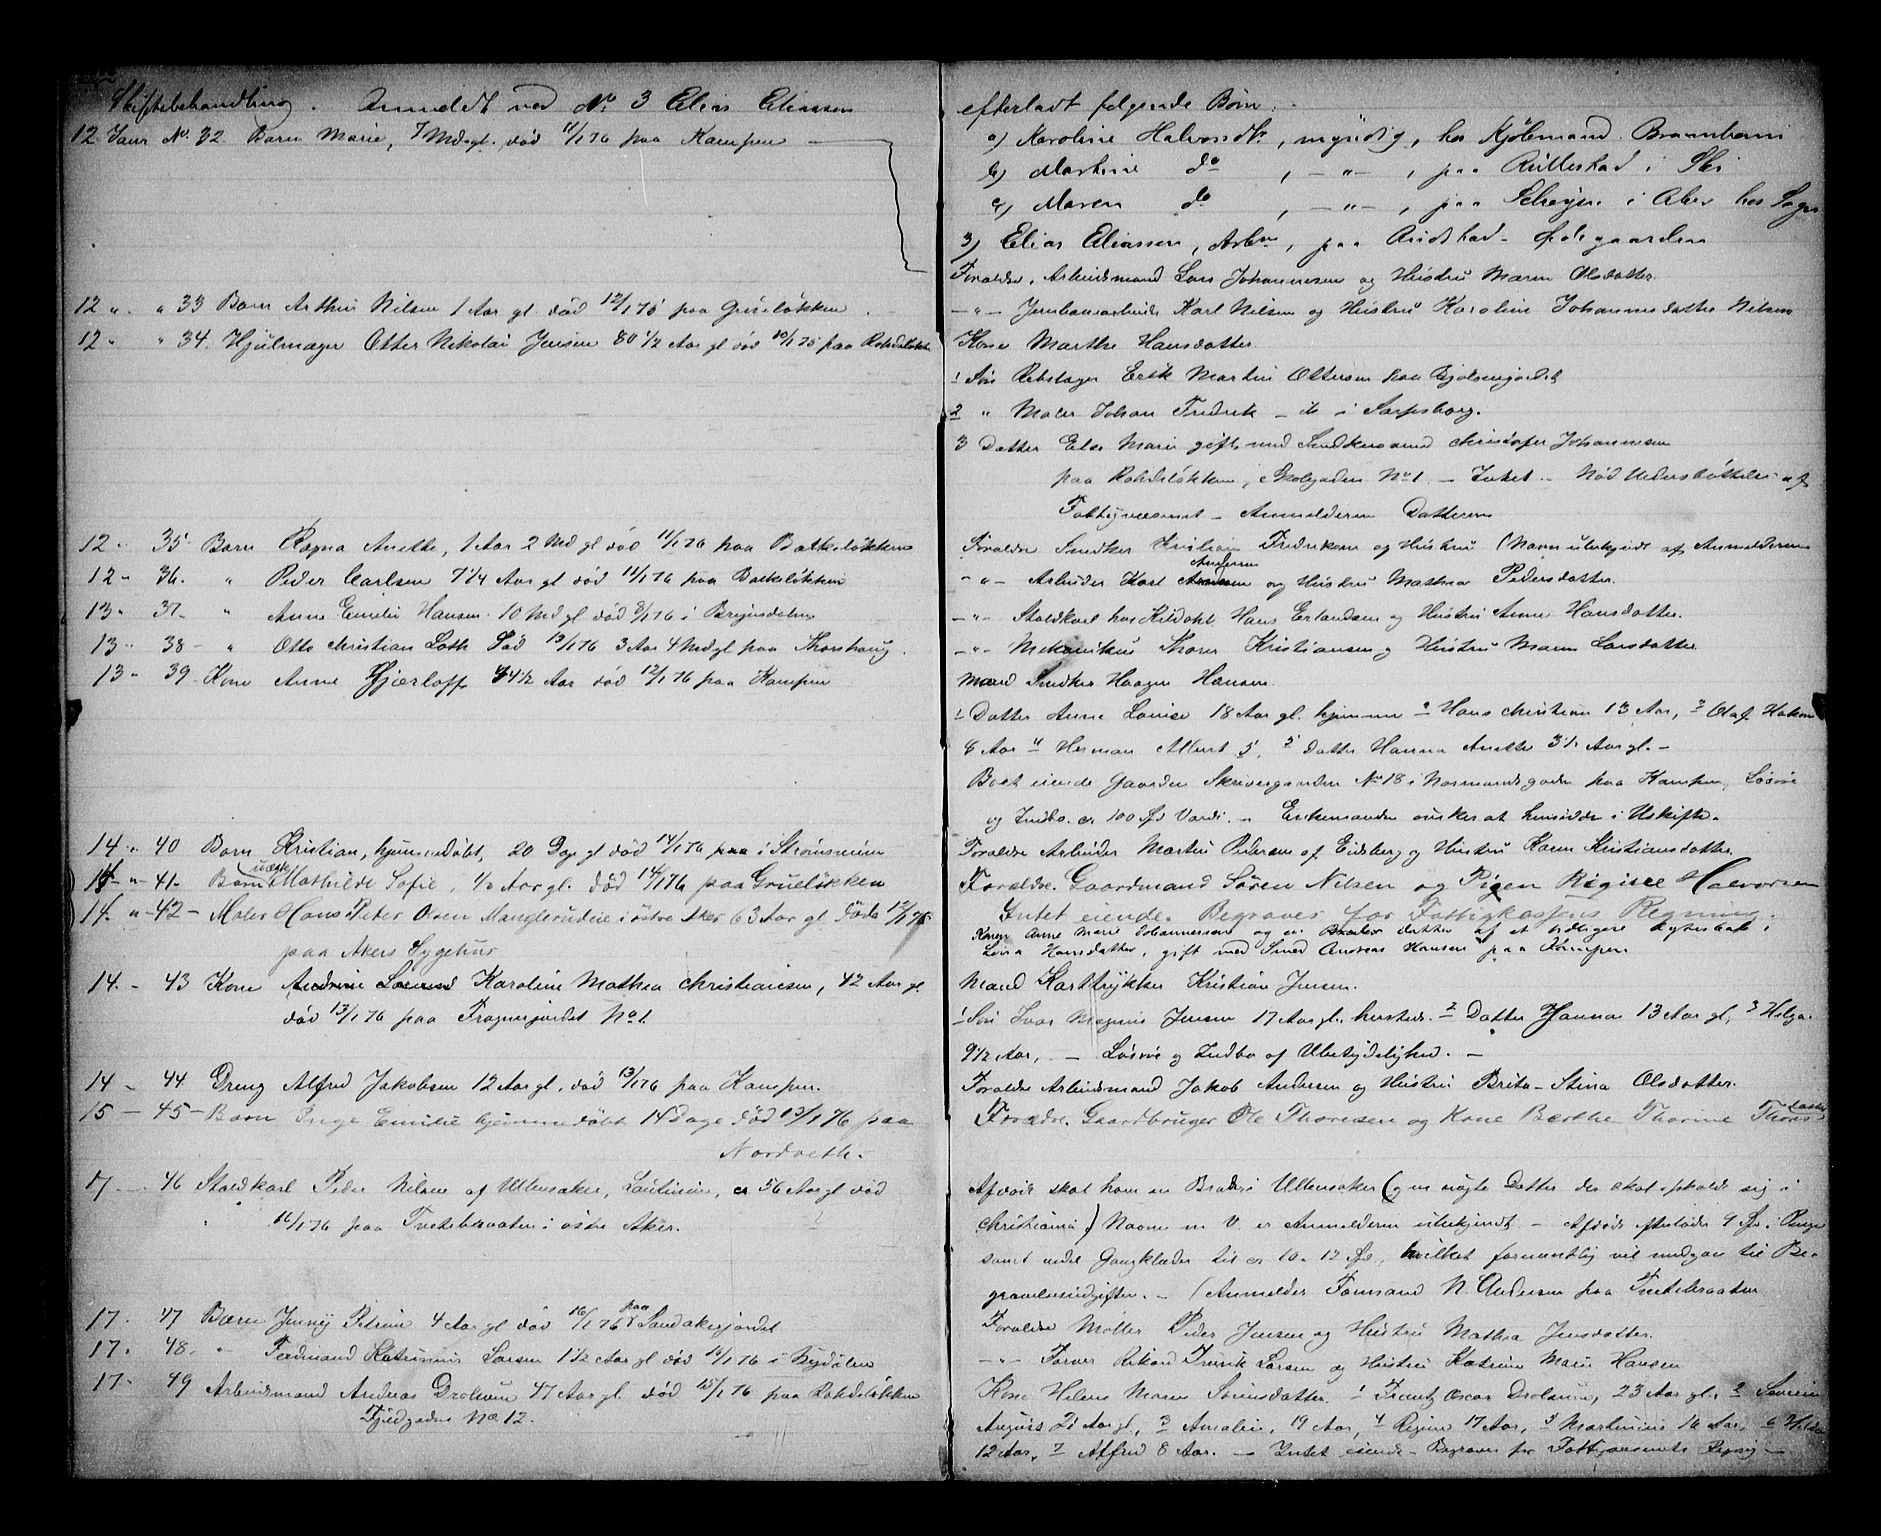 Skiftebehandling. Anmeldt ved No 3 Elias Eliassen
12 Janr No. 32. Barn Marie, 7 Mdsgl. død 11/1 76 paa Kampen
12 " " 33 Barn Arthur Nilsen 1 Aar gl. død 12/1 75 paa Grüneløkken
12 " " 34. Hjulmager Otter Nikolai Jensen 80 1/2 Aar gl død 10/1 75 paa Rodeløkken
12 " 35 Barn Ragna Anette, 1 Aar 2 Md gl død 11/1 76 paa Bakkeløkken
12 " 36. " Peder Carlsen 7 1/4 Aar gl død 11/1 76 paa Bakkeløkken
13 " 37 " Anne Emilie Hansen 10 Md gl død 8/1 76 i Brynsdalen
13 " 38 " Otto Christian Loth død 13/1 76 3 Aar 4 Md gl paa Thorshaug.
13 " 39 Kone Anne Gjærloff 44 1/2 Aar død 12/1 76 paa Kampen
14 " 40 Barn Kristian, hjemmedøbt, 20 Dage gl død 14/1 76 paa i Strømsveien
14 " 41. uægte Barn Mathilde Sofie, 1/2 Aar gl. død 14/1 76 paa Grueløkken
14. " 42 Maler Hans Peter Olsen Manglerudeie i østre Aker 63 Aar gl døde 12/1 76
paa Akers Sygehus
14. 43 Kone Karoline Mathea Christiansen, 42 Aar gl.
død 13/1 76 paa Frognerjordet No 1.
14 44. Dreng Alfred Jakobsen 12 Aar gl. død 13/1 76 paa Kampen.
15 45 Barn Inge Emilie hjemmedøbt 14 Dage død 13/1 76 paa
Nordseth.
17 46 Staldkarl Peder Nilsen af Ullensaker, 56 Aar gl død
16/1 76 paa Tvetebraaten i østre Aker.
17. 47 Barn Jenny Petrine 4 Aar gl død 16/1 76 paa Sandakerjordet
17. 48. " Ferdinand Larsen 1 1/2 Aar gl død 14/1 76 i Bygdølen
17. 49 Arbeidsmand Andreas Drolsum 47 Aar gl. død 15/1 76 paa Rodeløkken
No. 12.
efterladt følgende Børn:
a) Karoline Halvorsdtr, myndig, hos Kjøbmand
b) Martine do , — " — , paa i Ski
c) Maren do , — " — , paa i Aker hos
3) Elias Eliassen, Arbm, paa Ødegaarden
Forældre. Arbeidsmand Lars Johannesen og Hustru Maren Olsdatter.
— " — Jernbanearbeider Karl Nilsen og Hustru Karoline Johannesdatter Nilsen
Kone Marthe Hansdatter
1 Søn Rebslager Erik Martin Ottersen paa Bjølsenjordet
2 " Maler Johan Fredrik — do i Sarpsborg.
3 Datter Else Marie gift med Snedkersvend Christofer Johannesen
paa Rodeløkken, Skolegaden No 1. — Intet. — Nød Understøttelse af
Fattigvæsenet — Anmelderen Datteren
Forældre Snedker Kristian Fredriksen og Hustru (Navn ubekjendt af Anmelderen
— " — Arbeider Karl Andersen og Hustru Mathea Pedersdatter.
— " — Staldkarl hos Kildahl, Hans Erlandsen og Hustru Anne Hansdatter.
— " — Mekanikus Thorer Kristiansen og Hustru Maren Larsdatter
Mand Snedker Haagen Hansen
1 Datter Anne Louise 18 Aar gl. hjemme 2 Hans Christian 13 Aar, 3 Olaf Hakon
8 Aar 4 Herman Albert 5, 5 Datter Hanna Anette 3 1/2 Aar gl. —
Boet eiende Gaarden Skrivergaarden No 18 i Normandsgaden paa Kampen, Løsøre
og Indbo ca 100 Spd Værdi. — Enkemanden ønsker at hensidde i Uskifte.
Forældre Arbeider Martin Pedersen af Eidsberg og Hustru Karen Kristiansdatter
Forældre. Gaardmand Søren Nilsen og Pigen Regine Halvorsen
Intet eiende. Begraves for Fattigkassens Regning.
Konen Anne Marie Johannesen og en datter af et tidligere Ægteskab
Lovisa Hansdatter, gift med Smed Andreas Hansen paa Kampen
Mand Karttrykker Kristian Jensen.
1 Søn Ivar Magnus Jensen 17 Aar gl. hersteds. 2 Datter Hanna 13 Aar gl, 3 Helga
9 1/2 Aar, — Løsøre og Indbo af Ubetydelighed. —
Forældre Arbeidsmand Jakob Andersen og Hustru Brita-Stina Olsdatter.
Forældre. Gaardbruger Ole Thoresen og Kone Berthe Thorine Thorsdatter
Afdøde skal have en Broder i Ullensaker (og en uægte Datter der skal opholde sig i
Christiania) Navne m. V. er Anmelderen ubekjendt. — Afdøde efterlader 9 Spd i Penge
samt endel Gangklæder til ca 10 a 12 Spd, hvilket formentlig vil medgaa til Be-
gravelsesudgifter. — (Anmelder Formand N. Andersen paa Tvetebraaten
Forældre Møller Peder Jensen og Hustru Mathea Jensdatter.
— " — Farver Rikard Fredrik Larsen og Hustru Katrine Marie Hansen
Kone Helene Marie Sørensdatter. 1 Frantz Oscar Drolsum, 23 Aar gl. 2 Severin
August 21 Aar gl, 3 Amalie, 19 Aar, 4 Regine 17 Aar, 5 Martinius 16 Aar, 6 Hilda
12 Aar, 7 Alfred 8 Aar. — Intet eiende — Begraves for Fattigvæsenets Regning —